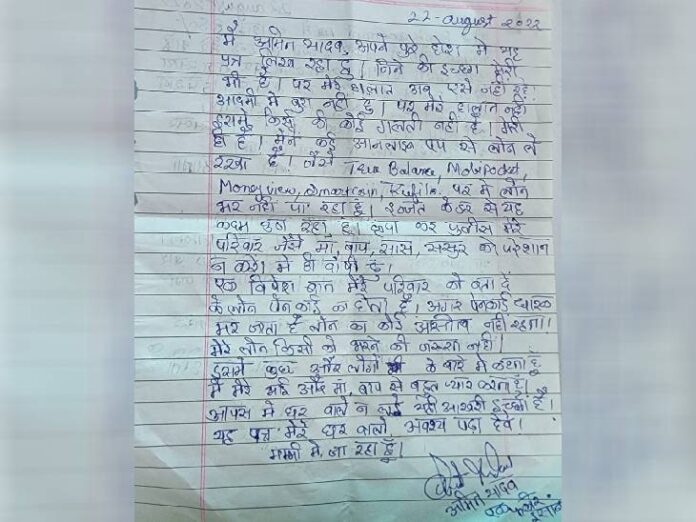 22-august 2022
मैं अमित यादव, अपने पुरे होश मे यह
पत्र लिख रहा हु। जिने की इच्छा मेरी
भी है। पर मेरे हालात अब एसे नही रहे।
आदमी मे बुरा नही हु। पर मेरे हालात नही।
इसमे किसी की कोई गलती नही है। मेरी
ही है। मैने कई आनलाइन एप से लोन ले
रखा है। जैसे True Balance, Mobi Pocket,
Money view, Smart coin, Rufilo. पर मे लोन
भर नही पा रहा हुं। इज्जत के डर से यह
कदम उठा रहा हुं। कृपा कर पुलीस मेरे
परिवार जैसे माँ, बाप, सास, ससुर को परेशान
न करे। मे ही दोषी हु।
एक विशेष बात मेरे परिवार को बता दे
के लोन पेनकार्ड का होता है। अगर पेनकार्ड धारक
मर जाता है लोन का कोई अस्तीत्व नही रहता।
मेरे लोन किसी को भरने की जरूरत नही।
इसमे कुछ और लोगो के बारे मे कहना हुं
मे मेरे भाई और माँ, बाप से बहुत प्यार करता हुं।
आपस मे घर वाले न लड़े यही आखरी इच्छा है।
यह पत्र मेरे घर वालो अवश्य पढ़ा देवे।
मम्मी मे जा रहा हुं।
अमित यादव